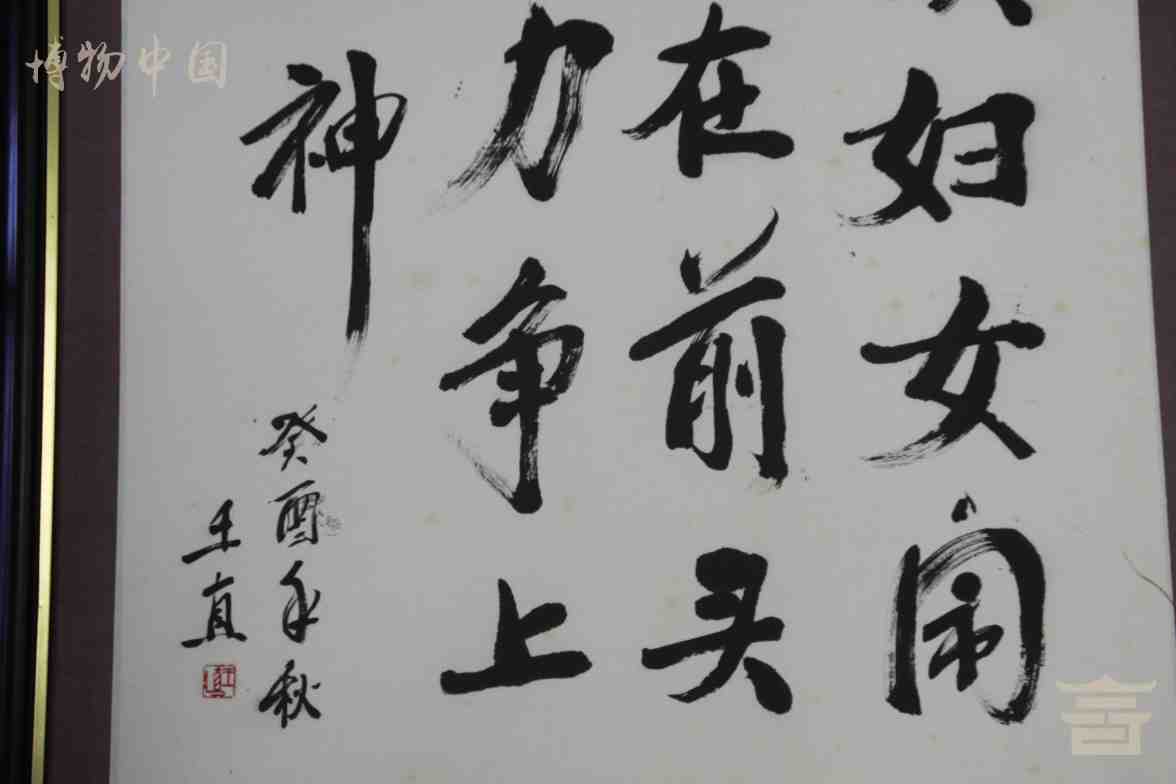 妇女闹
在前头
力争上
神
癸酉年秋
王直
博物中国